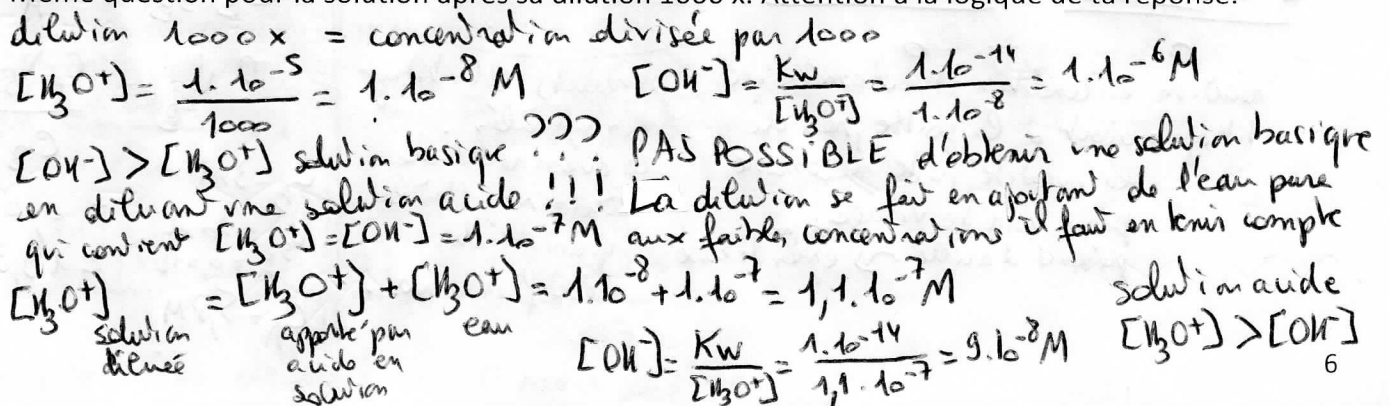 Même question pour la solution après sa dilution 1000 x. Attention à la logique de ta réponse.
dilution 1000 x = concentration divisée par 1000
[H₃O⁺] = 1.10⁻⁵ / 1000 = 1.10⁻⁸ M [OH⁻] = Kw / [H₃O⁺] = 1.10⁻¹⁴ / 1.10⁻⁸ = 1.10⁻⁶ M
[OH⁻] > [H₃O⁺] solution basique ??? PAS POSSIBLE d'obtenir une solution basique
en diluant une solution acide !!! La dilution se fait en ajoutant de l'eau pure
qui contient [H₃O⁺] = [OH⁻] = 1.10⁻⁷ M aux faibles concentrations il faut en tenir compte
[H₃O⁺] solution diluée = [H₃O⁺] apporté par acide en solution + [H₃O⁺] eau = 1.10⁻⁸ + 1.10⁻⁷ = 1,1.10⁻⁷ M solution acide
[OH⁻] = Kw / [H₃O⁺] = 1.10⁻¹⁴ / 1,1.10⁻⁷ = 9.10⁻⁸ M [H₃O⁺] > [OH⁻]
6